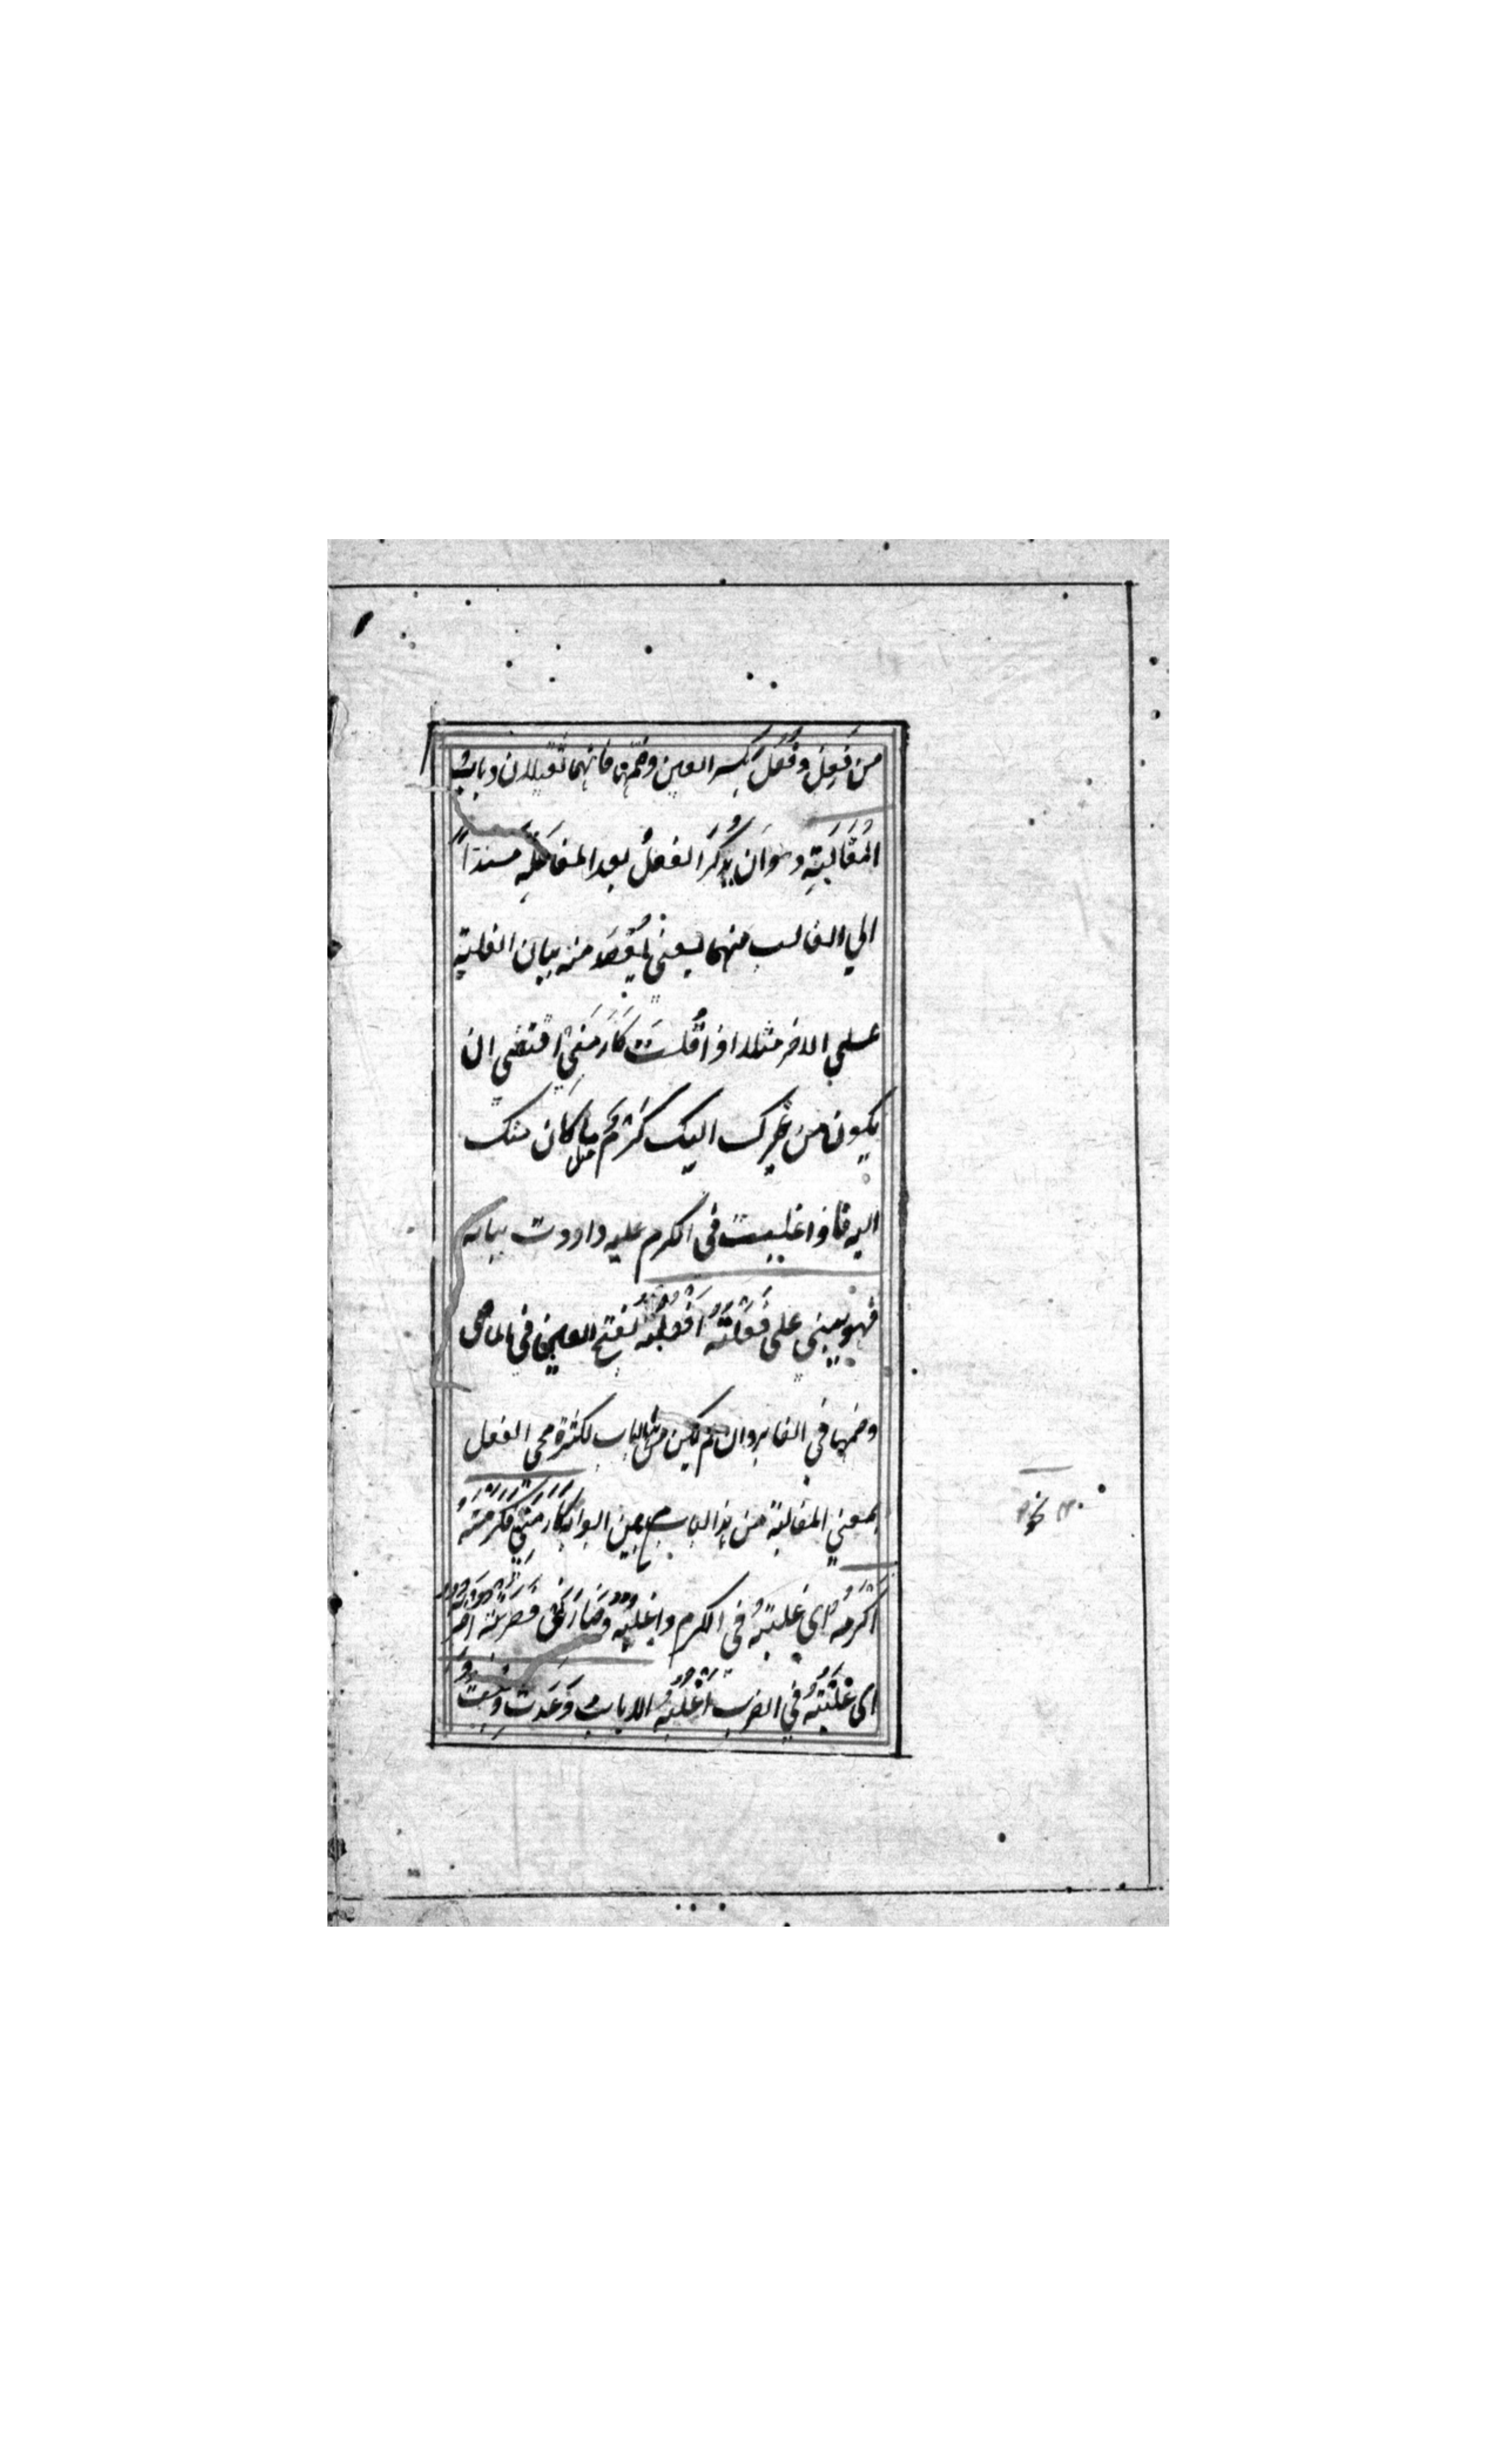 من فَعِلَ وفَعُلَ بكسر العين وضمّها فانهما ثقيلان وباب
المُغَالَبَةِ وهو ان يُذْكَرَ الفعلُ بعد المفاعَلَةِ مسنداً
الي الغالب منهما يعني يُقْصَد منه بيان الغلبة
علي الاخر مثلا اذا قُلتَ كَارَمَنِي اقتضي ان
يكون من غيرك اليك كَرَمٌ مثل ما كان منك
اليه فاذا غلبت في الكرم عليه واردت بيانه
فهو يبني علي فَعَلْتُهُ اَفْعُلُهُ بفتح العين في الماضى
وضمها في الغابر وان لم يكن من هذا الباب لكثرة مجى الفعل
بمعني المغالبة من هذا الباب من بين الابواب كَارَمَنِي فَكَرَمْتُهُ
اَكْرُمُهُ اي غلبتُهُ في الكرم واغلبُهُ وضَارَبَنِي فَضَرَبْتُهُ اَضْرُبُهُ
اى غَلَبْتُهُ في الضرب اَغْلُبُهُ الا باب وَعَدْتُ وَبِعْتُ